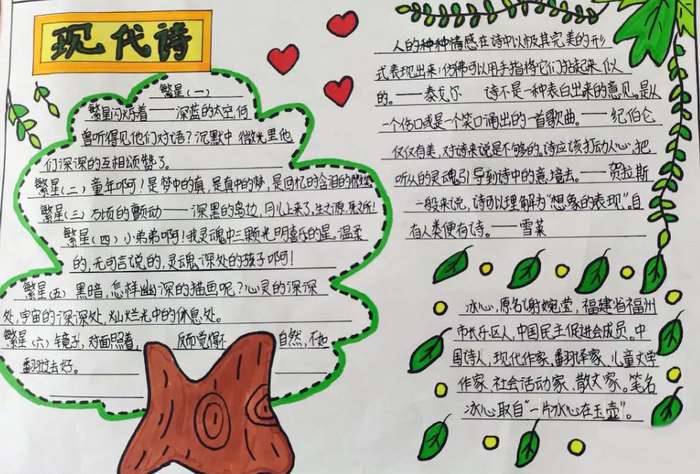 现代诗
繁星(一)
繁星闪烁着——深蓝的太空,何
曾听得见他们对语?沉默中,微光里他
们深深的互相颂赞了。
繁星(二)童年啊!是梦中的真,是真中的梦,是回忆时含泪的微笑
繁星(三)万顷的颤动——深黑的岛边,月儿上来了,生之源,死之所!
繁星(四)小弟弟啊!我灵魂中三颗光明喜乐的星,温柔
的,无可言说的,灵魂深处的孩子啊!
繁星(五)黑暗,怎样幽深的描画呢?心灵的深深
处,宇宙的深深处,灿烂光中的休息处。
繁星(六)镜子,对面照着,反而觉得不自然,不如
翻转去好。
人的种种情感在诗中以极其完美的形
式表现出来,仿佛可以用手指将它们拈起来似
的。——泰戈尔 诗不是一种表白出来的意见。是从
一个伤口或是一个笑口涌出的一首歌曲。——纪伯仑
仅仅有美,对诗来说是不够的。诗应该打动人心,把
听众的灵魂引导到诗中的意境去。——贺拉斯
一般来说,诗可以理解为“想象的表现”,自
有人类便有诗。——雪莱
冰心,原名谢婉莹,福建省福州
市长乐区人,中国民主促进会成员。中
国诗人,现代作家、翻译家、儿童文学
作家、社会活动家、散文家。笔名
冰心取自“一片冰心在玉壶”。